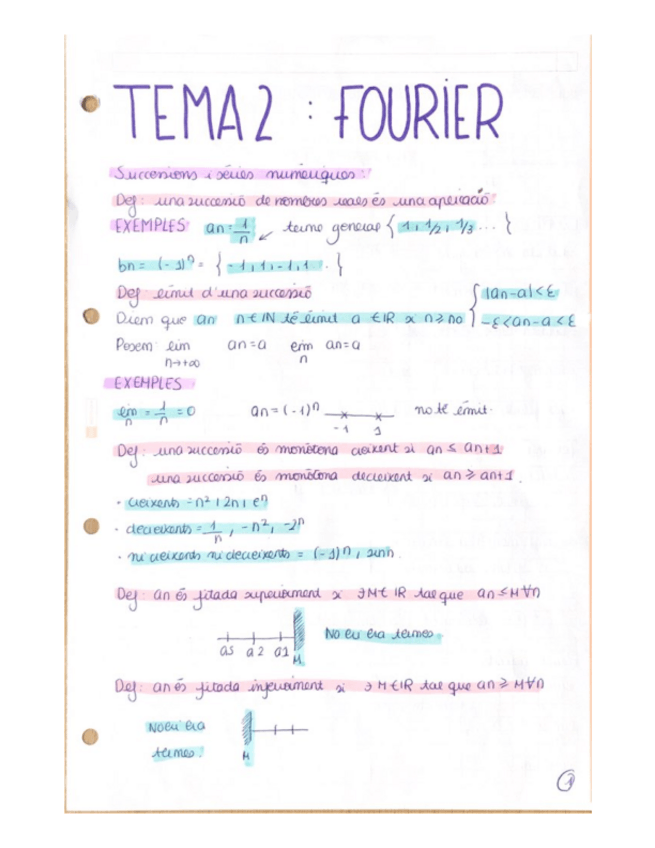 TEMA 2 : FOURIER
Successions i sèries numèriques:
Def: una successió de nombres reals és una aplicació
EXEMPLES an = 1/n ↙ terme general { 1, 1/2, 1/3 ... }
bn = (-1)^n = { -1, 1, -1, 1 . }
Def: límit d'una successió
Diem que an n∈IN té límit a ∈IR si n≥n0 { |an-a|<ε
-ε<an-a<ε
Posem: lim n→+∞ an=a lim n an=a
EXEMPLES
lim n = 1/n = 0 an=(-1)^n -1 1 no té límit.
Def: una successió és monòtona creixent si an ≤ an+1
una successió és monòtona decreixent si an ≥ an+1.
· creixents = n², 2n, e^n
· decreixents = 1/n, -n², -2^n
· ni creixents ni decreixents = (-1)^n, sinn.
Def: an és fitada superiorment si ∃M∈IR tal que an≤M∀n
No hi ha termes.
a3 a2 a1 M
Def: an és fitada inferiorment si ∃M∈IR tal que an≥M∀n
No hi ha
termes.
M
1